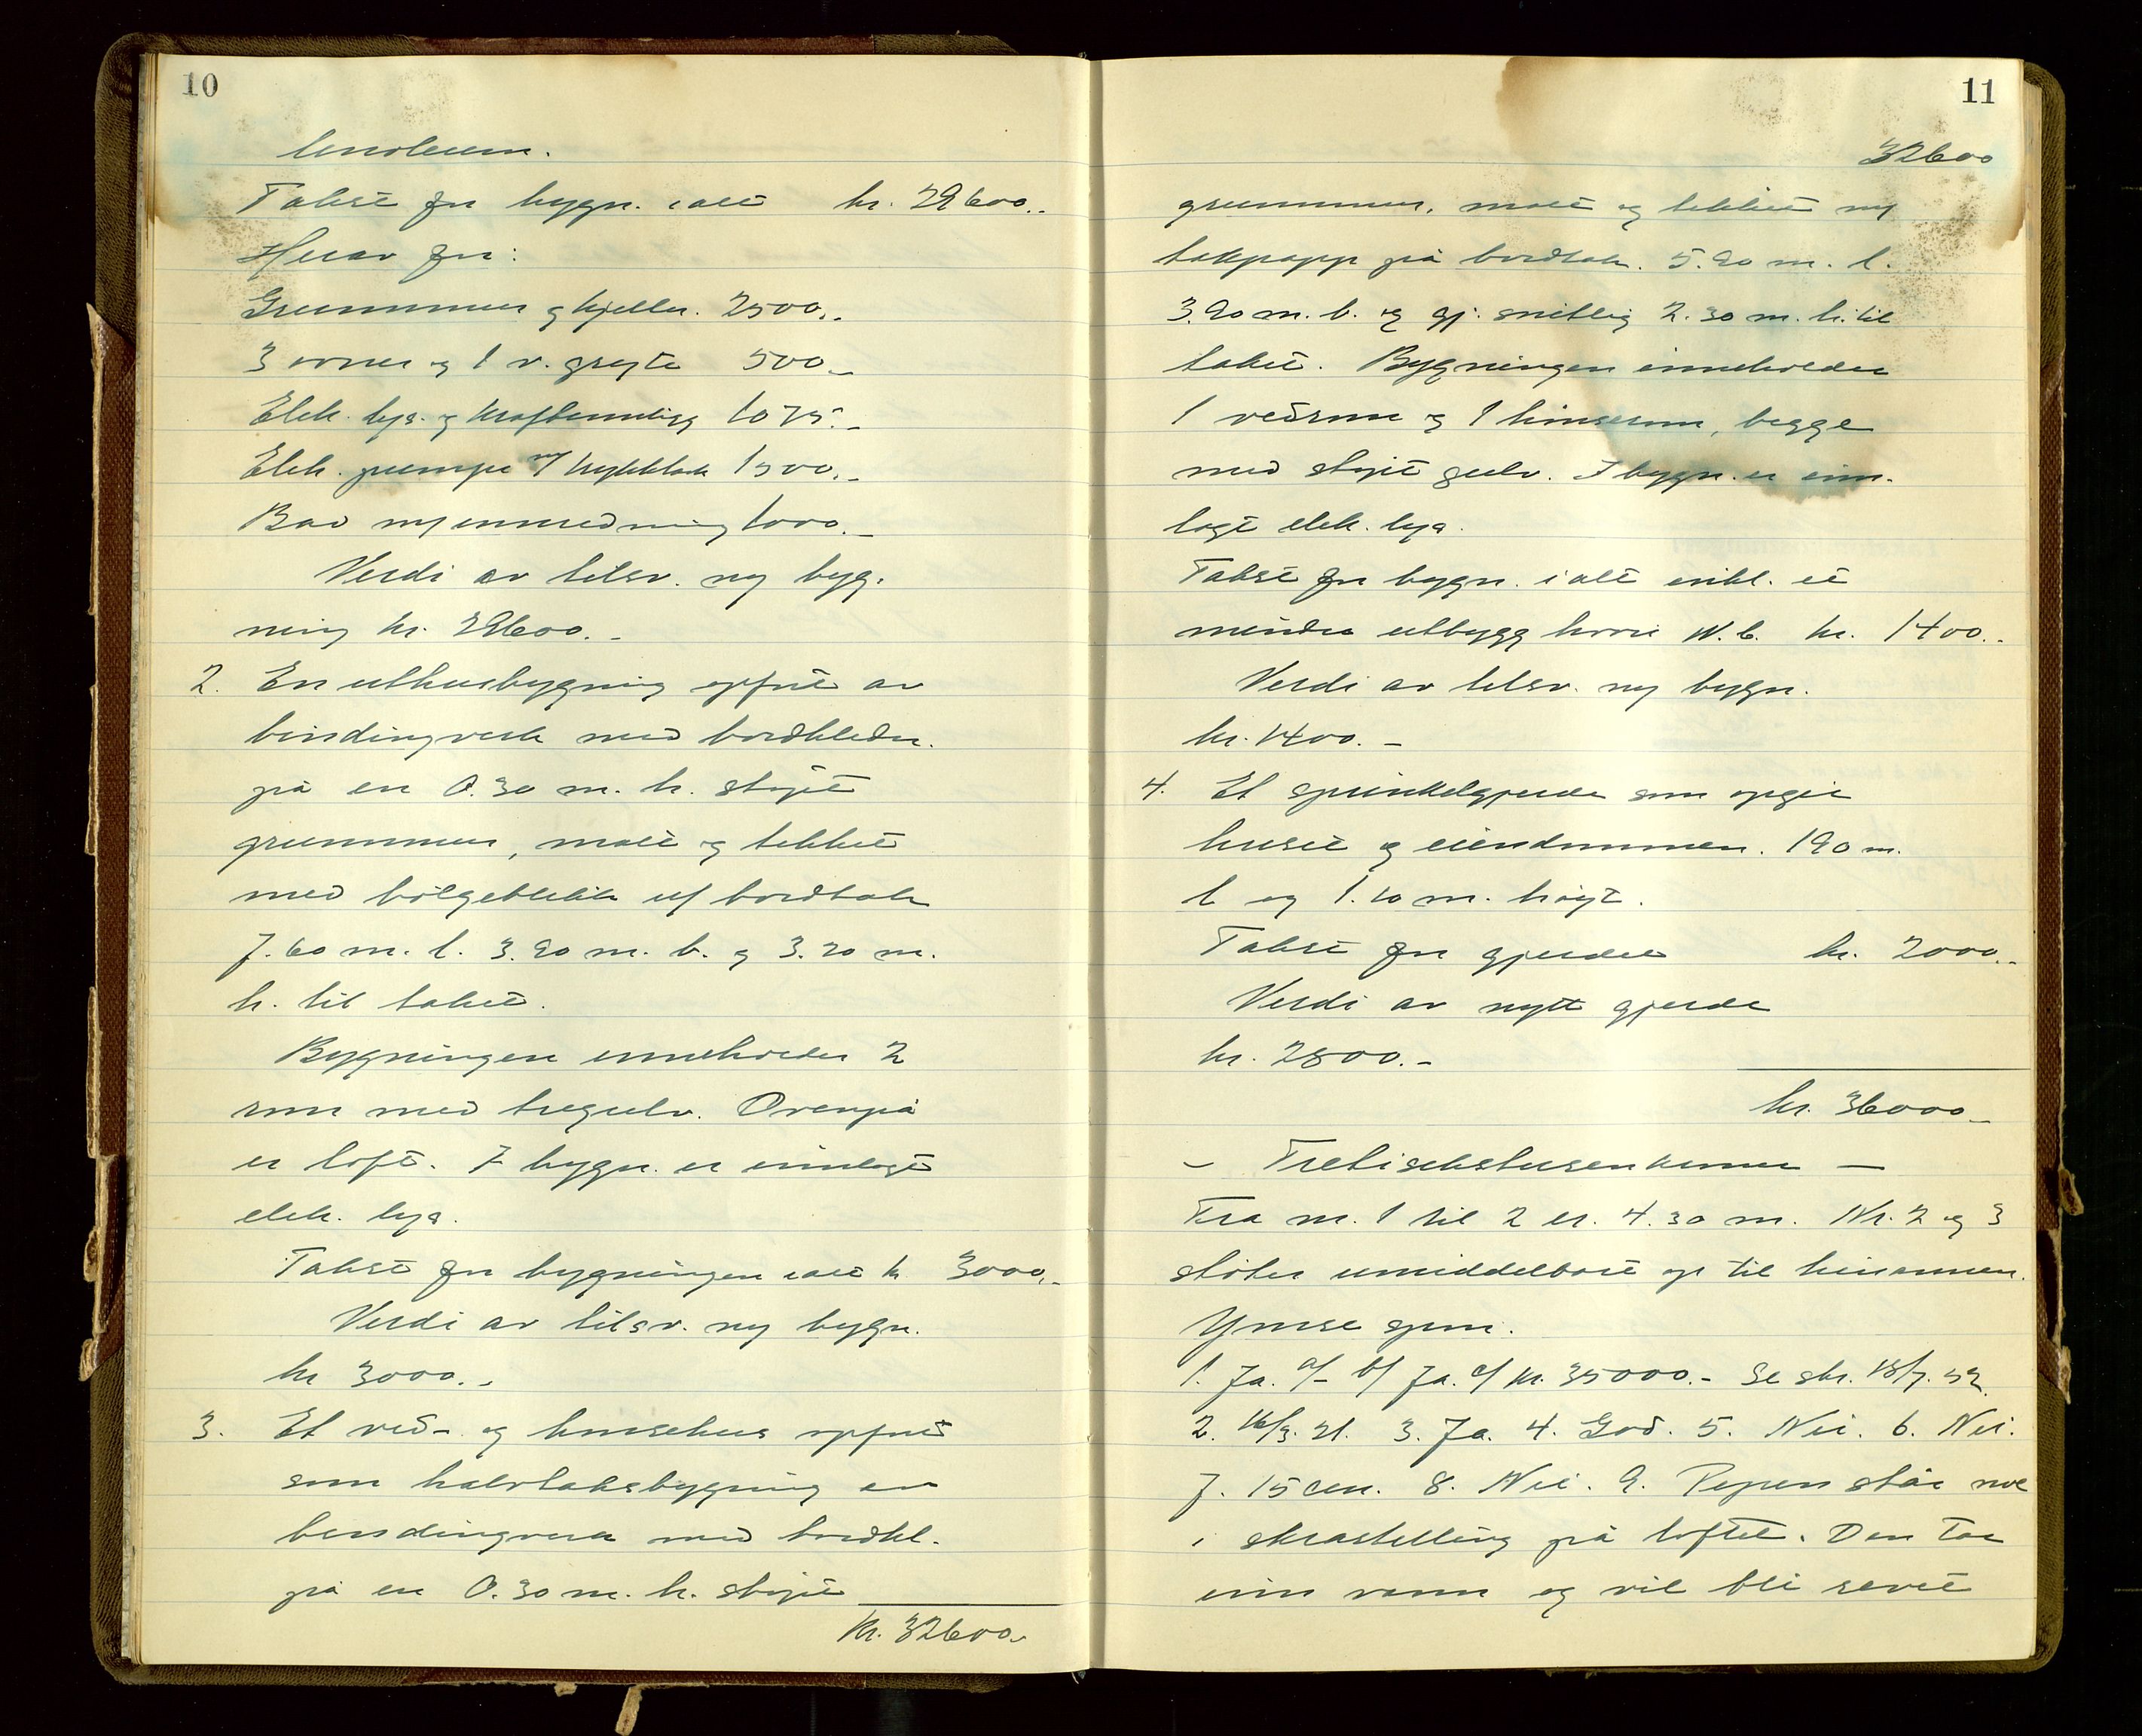 10
linoleum.
Takst for bygn. ialt kr. 29600.-
Herav for:
Grunnmur og kjeller. 2500.-
3 ovner og 1 v. gryte 500.-
Elek. lys- og kraftinnlegg 1075.-
Elek. pumpe m/ trykktank 1500.-
Bad m/ innredning 1000.-
Verdi av tilsv. ny byg-
ning kr. 29600.-
2. En uthusbygning opført av
bindingverk med bordkledn.
på en 0.30 m. h. støpt
grunnmur, malt og tekket
med bølgeblikk u/ bordtak
7.60 m. l. 3.90 m. b. og 3.20 m.
h. til taket.
Bygningen inneholder 2
rom med tregulv. Ovenpå
er loft. I bygn. er innlagt
elek. lys.
Takst for bygningen ialt kr 3000.-
Verdi av tilsv. ny bygn.
kr 3000.-
3. Et ved- og hønsehus opført
som halvtaksbygning av
bindingverk med bordkl.
på en 0.30 m. h. støpt
kr. 32600.-
11
32600
grunnmur, malt og tekket m/
takpapp på bordtak. 5.90 m. l.
3.90 m. b. og gj. snitlig 2.30 m. h. til
taket. Bygningen inneholder
1 vedrom og 1 hønserom, begge
med støpt gulv. I bygn. er inn-
lagt elek. lys.
Takst for bygn. ialt inkl. et
mindre utbygg hvori W.C. kr. 1400.-
Verdi av tilsv. ny bygn.
kr. 1400.-
4. Et sprinkelgjerde som omgir
huset og eiendommen. 190 m.
l og 1.10 m. høgt.
Takst for gjerdet kr. 2000.-
Verdi av nytt gjerde
kr. 2800.-
kr. 36000.-
- Trettisekstusenkroner -
Fra nr. 1 til 2 er. 4.30 m. Nr. 2 og 3
støter umiddelbart op til hinannen.
Ymse spm.
1. Ja. a/- b/ Ja. c/ kr. 35000.- Se skr. 18/7. 52.
2. 16/3. 21. 3. Ja. 4. God. 5. Nei. 6. Nei.
7. 15 cm. 8. Nei. 9. Pipen står noe
i skråstilling på loftet. Den tar
inn vann og vil bli revet